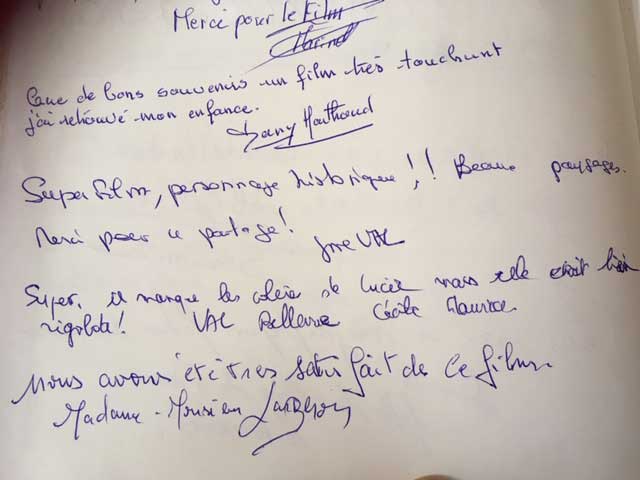 Merci pour le Film
Que de bons souvenirs un film très touchant
j'ai retrouvé mon enfance.
Dany
Super film, personnage historique !,! Beaux paysages.
Merci pour ce partage!
VAL
Super, il manque les de Lucie mais elle était bien
rigolote! VAL Cécile Maurice
Nous avons été très satisfait de ce film.
Madame - Monsieur